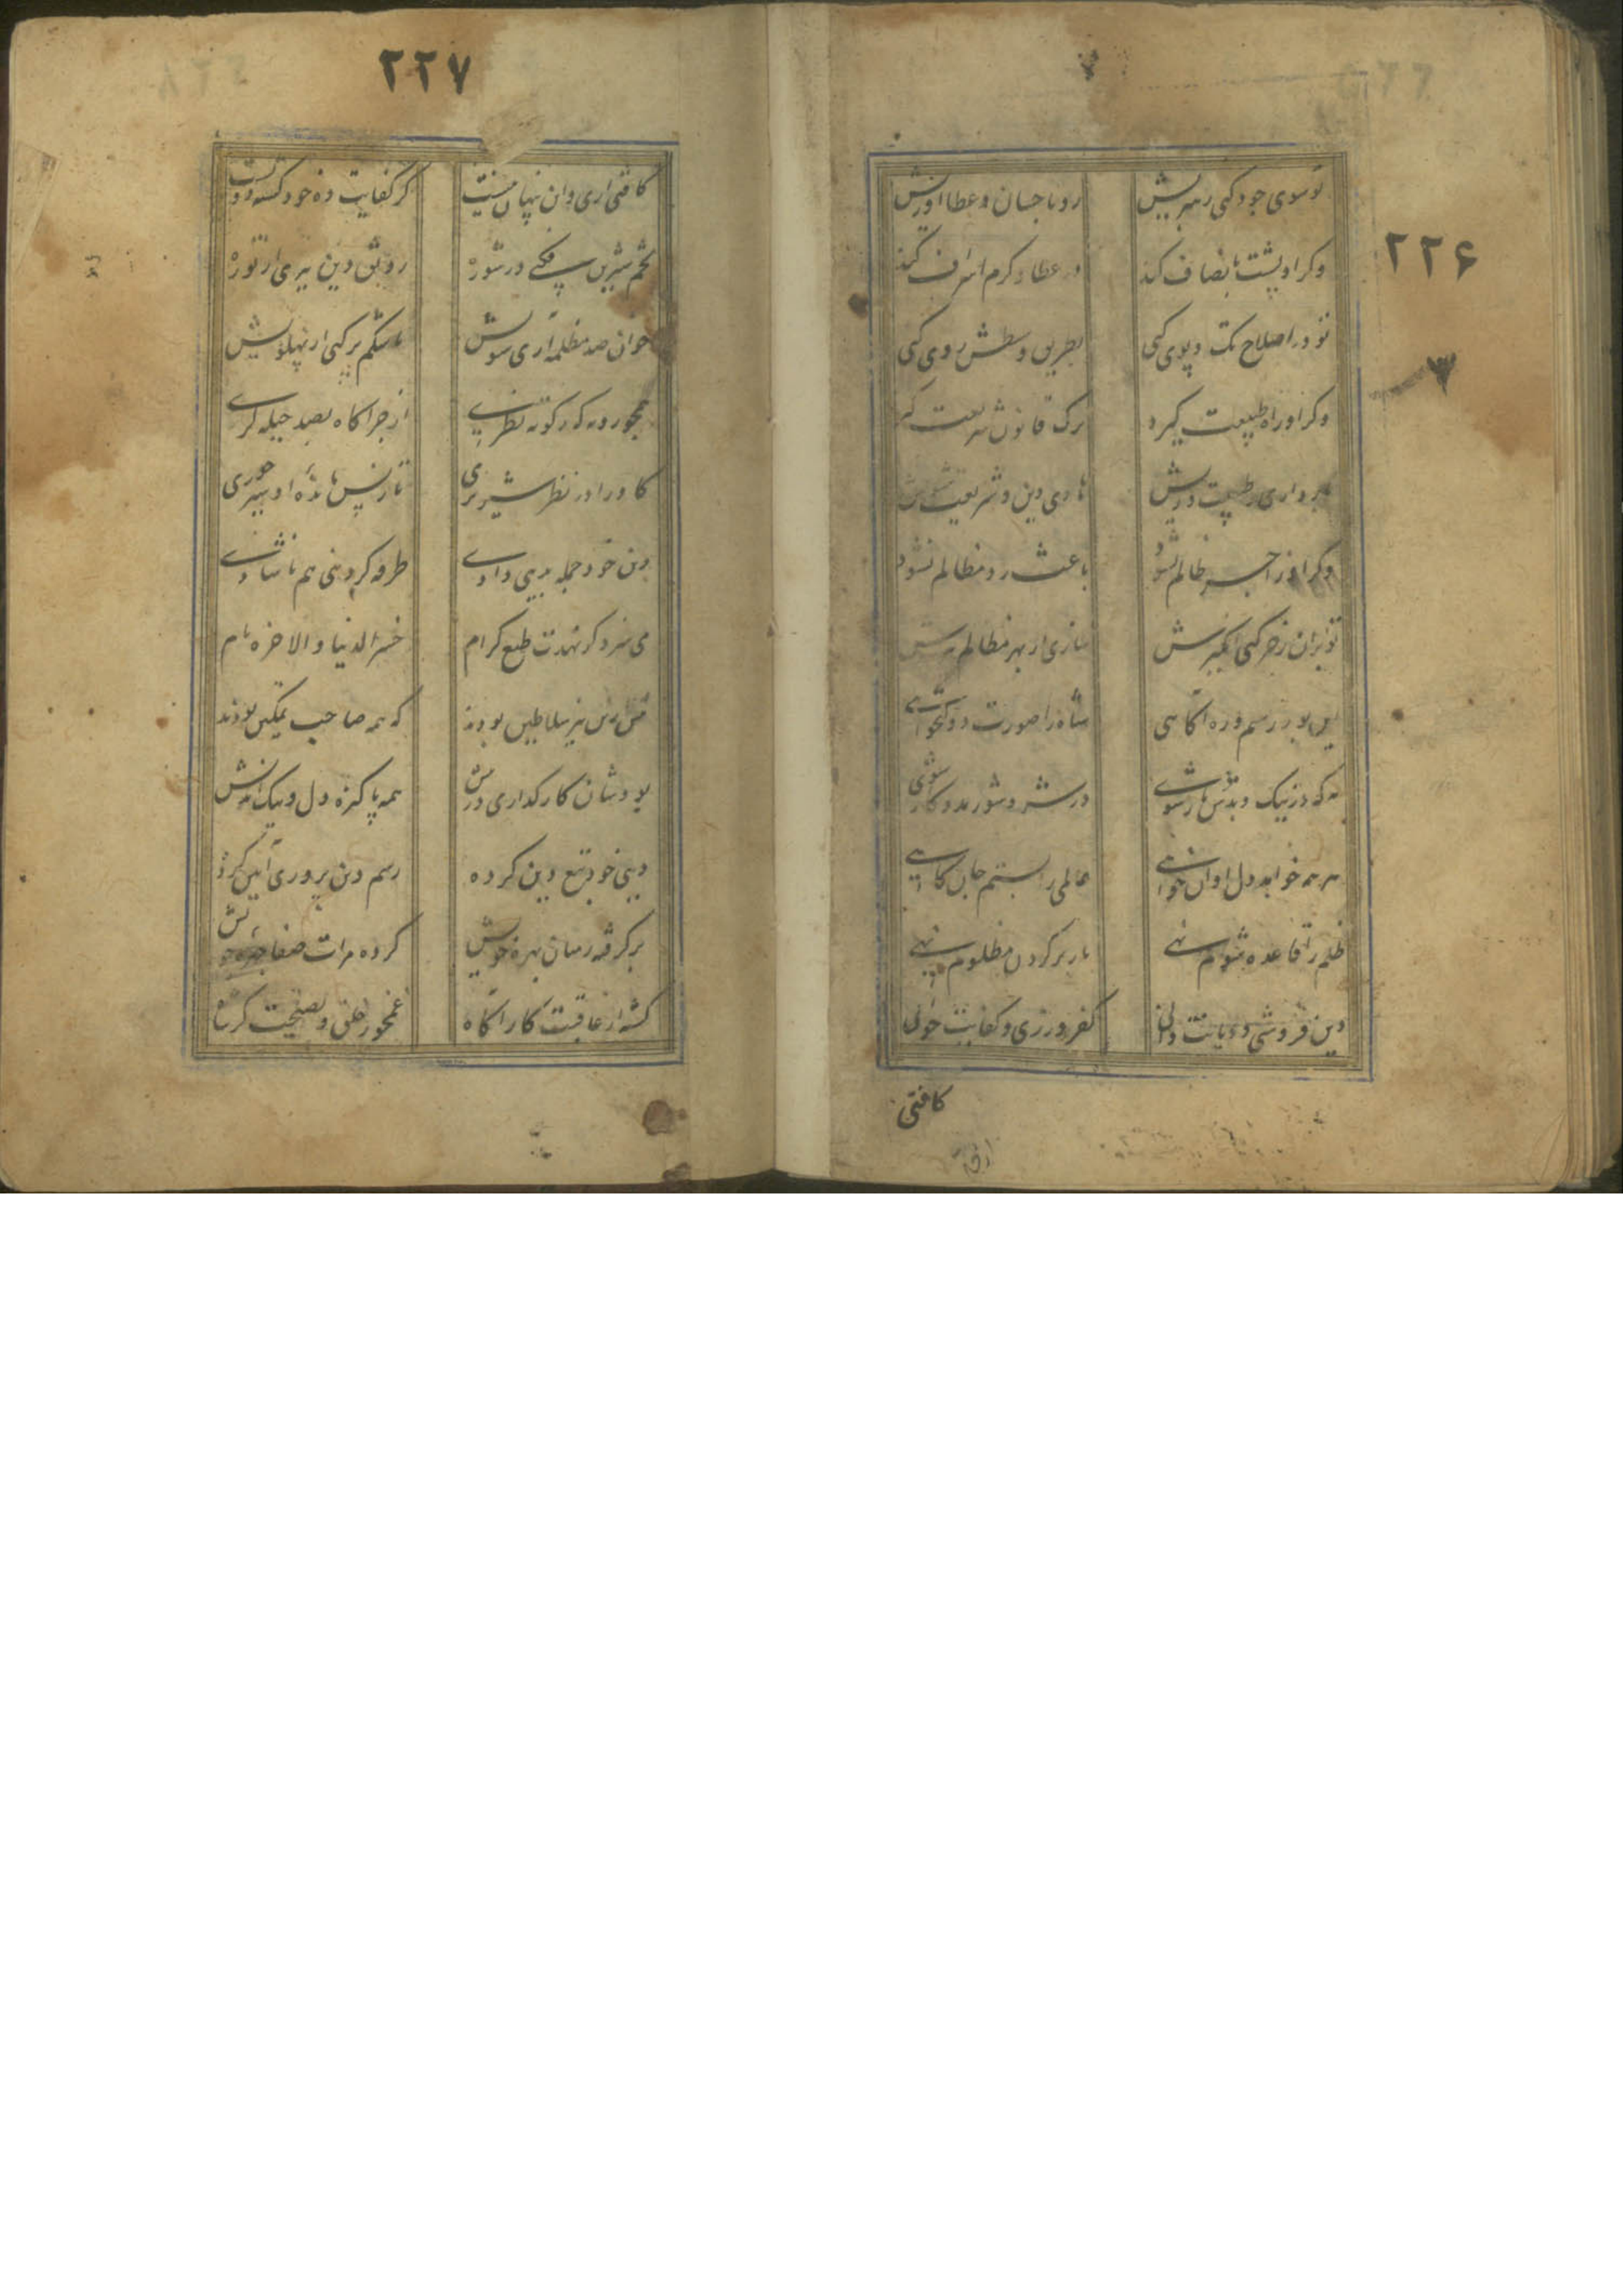 ۲۲۶
تو سوی جود کنی رهبریش
رو باحسان و عطا آوریش
وگر او پشت بانصاف کند
در عطا و کرم اسراف کند
تو در اصلاح تک و پوی کنی
بطریق وسطش روی کنی
وگر او راه طبیعت گیرد
ترک قانون شریعت گیرد
باز داری ز طبیعت وریش
هادی دین و شریعت شویش
وگر او زاجر ظالم نشود
باعث رد مظالم نشود
تو بران زجر کنی انگیزش
سازی از بهر مظالم تیزش
این بود رسم و ره آگاهی
شاه را صورت دولتخواهی
نه که در نیک و بدش یار شوی
در شر و شور مددکار شوی
هر چه خواهد دل او آن خواهی
عالمی را بستم جان کاهی
ظلم را قاعده شوم نهی
بار بر گردن مظلوم نهی
دین فروشی و دیانت دانی
کفر ورزی و کفایت خوانی
کافتی
۲۲۷
کافتی آری وان پنهان نیست
گر کفایت ده خود کنی دو
تخم شیرین فکنی در شوره
رونق دین ببری از توره
خوان صد مظلمه آری سویش
تا شکم پر کنی از پهلویش
از چراگاه بصد حیله گری
کاورا در نظر شیر نری
تا ز پس مانده او بهره خوری
دین خود جمله بدنیی دادی
طرفه کز دنیی هم ناشادی
می سزد گر نهدت طبع کرام
خسر الدنیا و الاخره نام
پیش ازین نیز سلاطین بودند
که همه صاحب تمکین بودند
بودشان کارگذاری در پیش
همه پاکیزه دل و نیک اندیش
دنیی خود تبع دین کرده
رسم دین پروری آیین کرده
برگرفته ز میان بهره خویش
کرده مرات صفا چهره خویش
گشته از عاقبت کار آگاه
غمخور خلق و نصیحت گر شاه